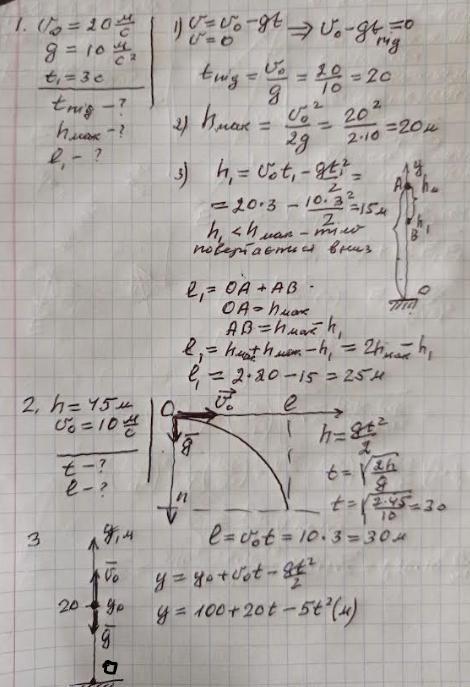 1. v₀ = 20 м/с
g = 10 м/с²
t₁ = 3с
t під - ?
h мак - ?
l₁ - ?
1) v = v₀ - gt ⇒ v₀ - gt під = 0
v = 0
t під = v₀/g = 20/10 = 2с
2) h мак = v₀²/2g = 20²/2·10 = 20м
3) h₁ = v₀t₁ - gt₁²/2 =
= 20·3 - 10·3²/2 = 15м
h₁ < h мак - тіло
повертається вниз
y
A h м
B h₁
O
l₁ = OA + AB.
OA = h мак
AB = h мак - h₁
l₁ = h мак + h мак - h₁ = 2h мак - h₁
l₁ = 2·20 - 15 = 25м
2. h = 45м
v₀ = 10 м/с
t - ?
l - ?
O v₀ l
g
h
h = gt²/2
t = √(2h/g)
t = √(2·45/10) = 3с
l = v₀t = 10·3 = 30м
3
y, м
v₀
20 y₀
g
0
y = y₀ + v₀t - gt²/2
y = 100 + 20t - 5t² (м)